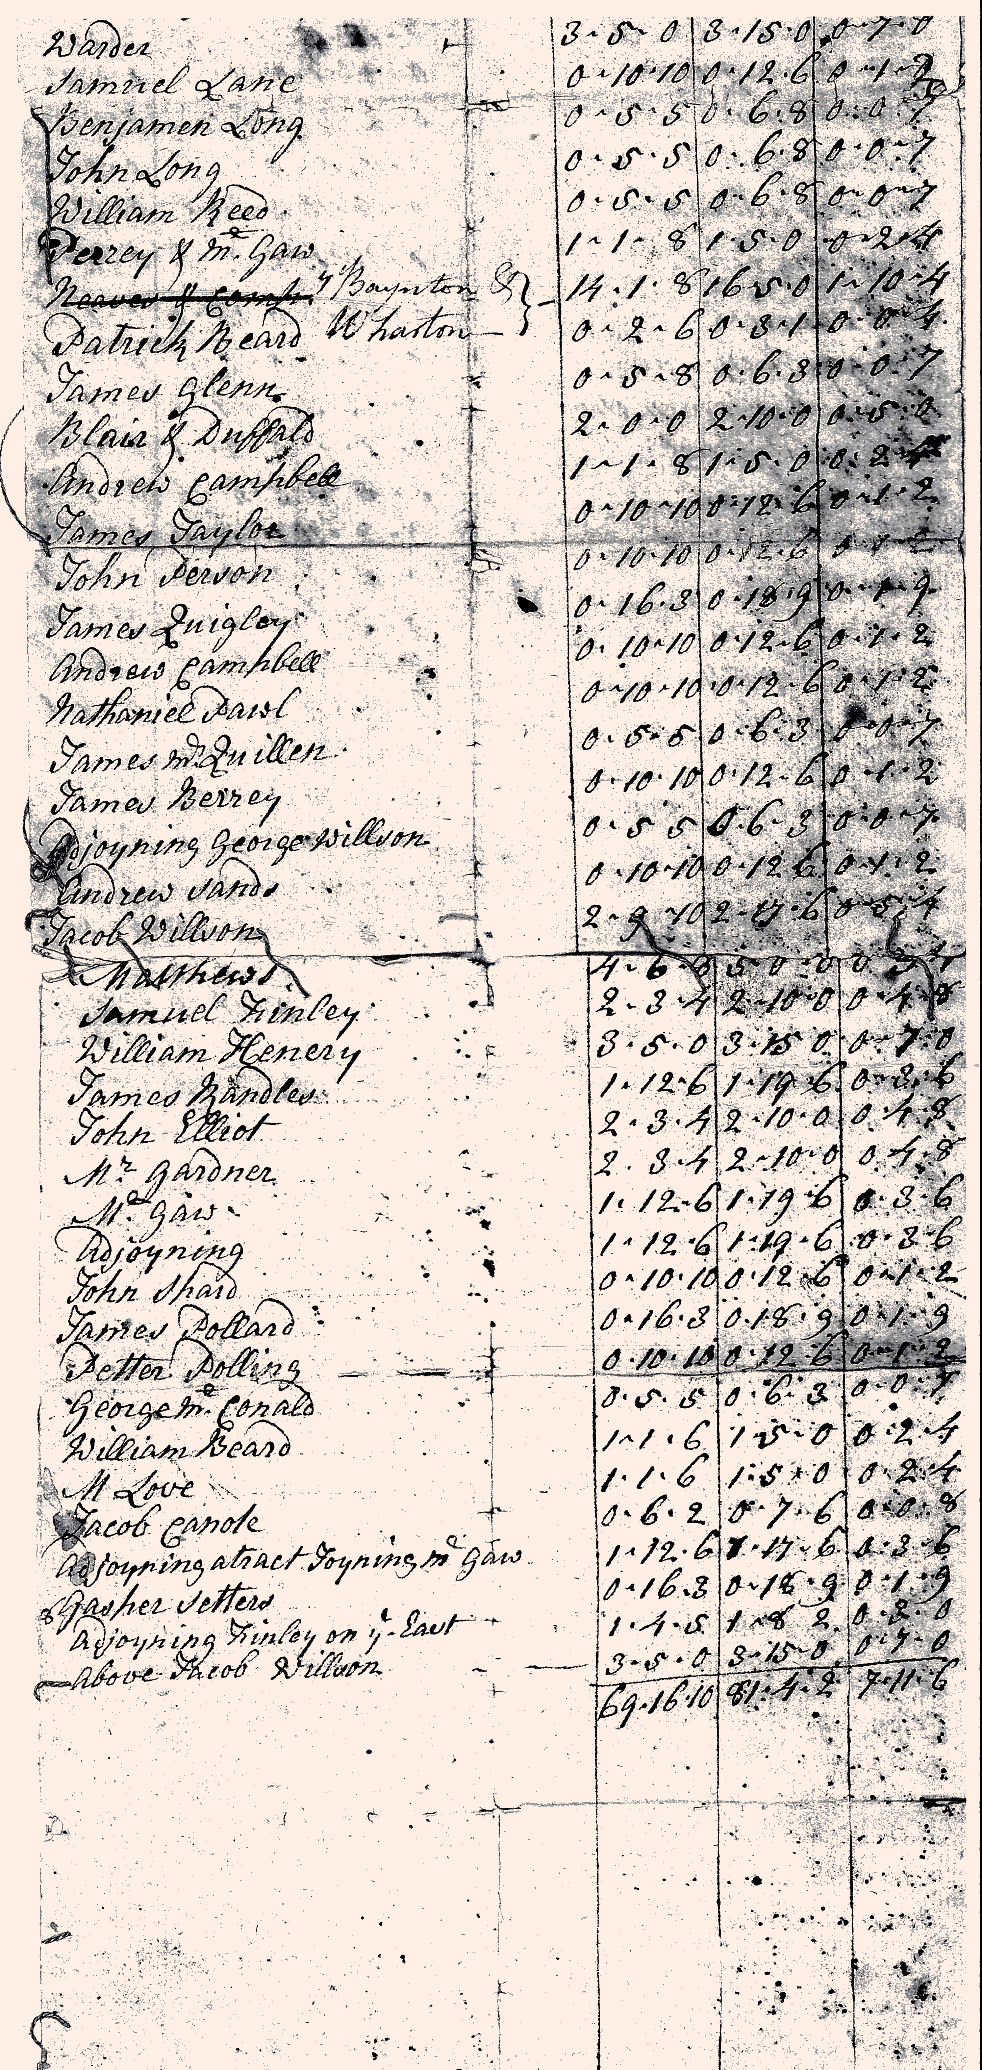 Warder 3-5-0 3-15-0 0-7-0
Samuel Lane 0-10-10 0-12-6 0-1-2
Benjamen Long 0-5-5 0-6-8 0-0-7
John Long 0-5-5 0-6-8 0-0-7
William Reed 0-5-5 0-6-8 0-0-7
Perrey & Mc Gaw 1-1-8 1-5-0 0-2-4
Boynton & 14-1-8 16-5-0 1-10-4
Patrick Beard Wharton 0-2-6 0-3-1 0-0-4
James Glenn 0-5-8 0-6-3 0-0-7
Blair & Duffald 2-0-0 2-10-0 0-5-0
Andrew Campbell 1-1-8 1-5-0 0-2-4
James Taylor 0-10-10 0-12-6 0-1-2
John Person 0-10-10 0-12-6 0-1-2
James Quigley 0-16-3 0-18-9 0-1-9
Andrew Campbell 0-10-10 0-12-6 0-1-2
Nathaniel Pawl 0-10-10 0-12-6 0-1-2
James Mc Quillen 0-5-5 0-6-3 0-0-7
James Berrey 0-10-10 0-12-6 0-1-2
Adjoyning George Willson 0-5-5 0-6-3 0-0-7
Andrew Sands 0-10-10 0-12-6 0-1-2
Jacob Willson 2-9-10 2-17-6 0-5-4
Matthews 4-6-8 5-0-0
Samuel Finley 2-3-4 2-10-0 0-4-8
William Henery 3-5-0 3-15-0 0-7-0
James Randles 1-12-6 1-19-6 0-3-6
John Elliot 2-3-4 2-10-0 0-4-8
Mr Gardner 2-3-4 2-10-0 0-4-8
Mc Gaw 1-12-6 1-19-6 0-3-6
Adjoyning 1-12-6 1-19-6 0-3-6
John Shard 0-10-10 0-12-6 0-1-2
James Pollard 0-16-3 0-18-9 0-1-9
Petter Polling 0-10-10 0-12-6 0-1-2
George Mc Conald 0-5-5 0-6-3 0-0-7
William Beard 1-1-6 1-5-0 0-2-4
M Love 1-1-6 1-5-0 0-2-4
Jacob Canole 0-6-2 0-7-6 0-0-8
Adjoyning atract Joyning Mc Gaw 1-12-6 1-17-6 0-3-6
Gasher Setters 0-16-3 0-18-9 0-1-9
Adjoyning Finley on ye East 1-4-5 1-8-2 0-3-0
Above Jacob Willson 3-5-0 3-15-0 0-7-0
69-16-10 81-4-2 7-11-6